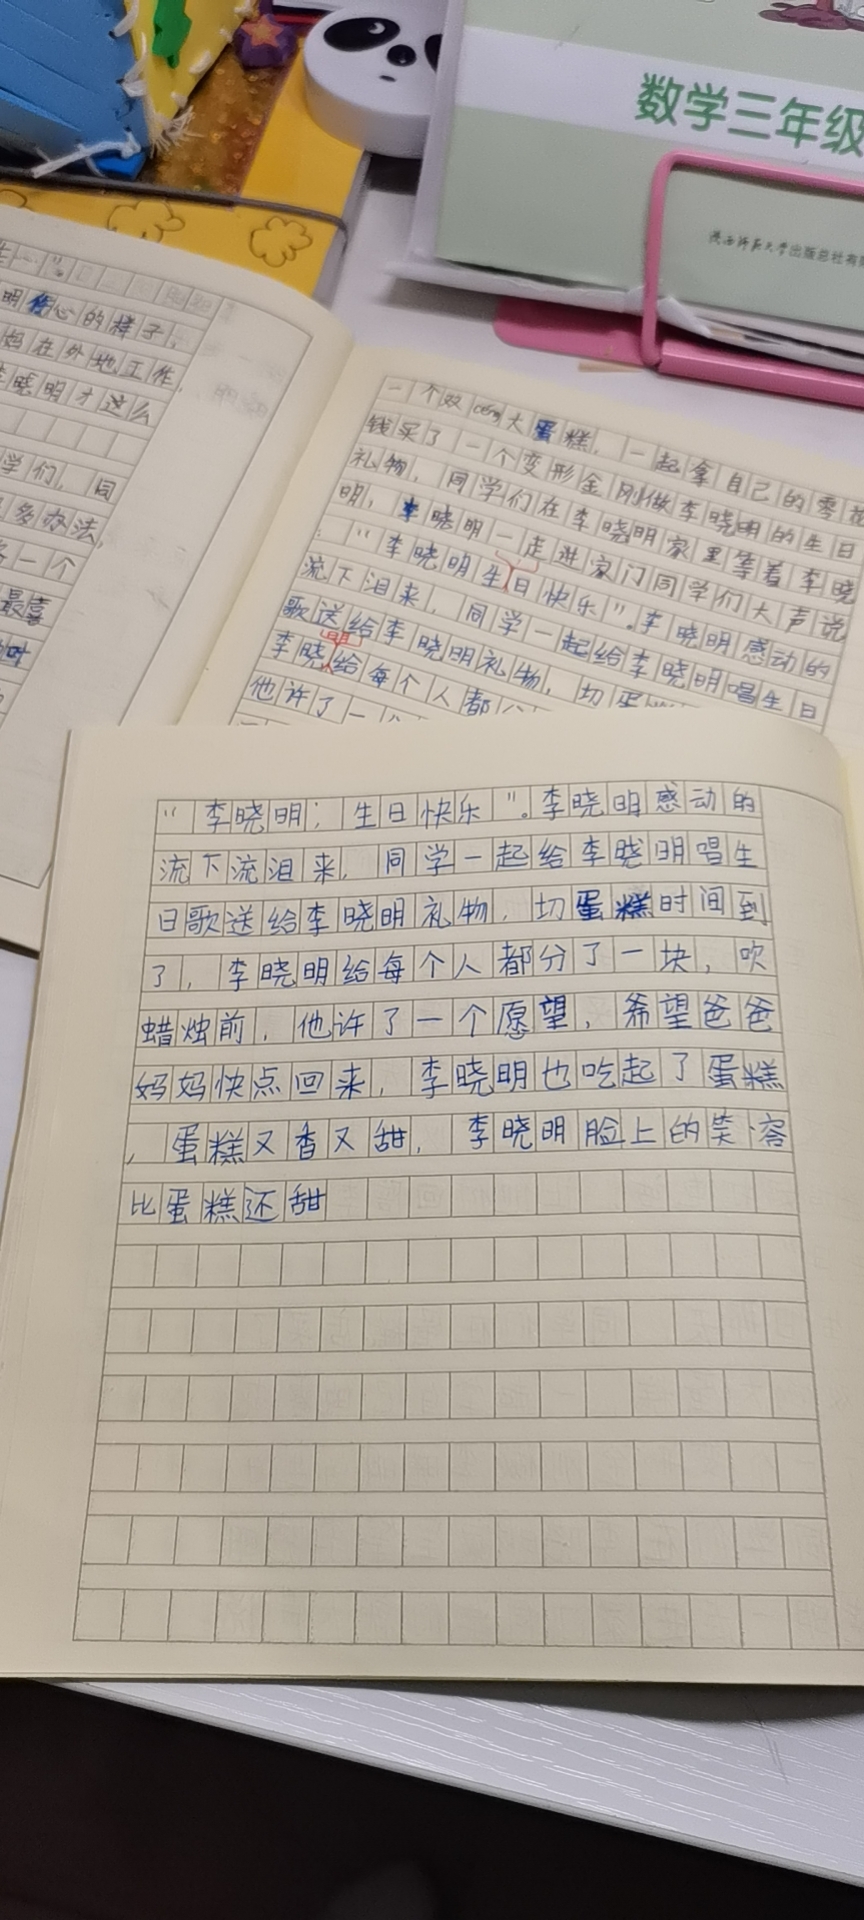 数学三年级
陕西师范大学出版总社有限
明伤心的样子，
妈在外地工作，
李晓明才这么
学们，同
多办法，
一个
最喜
一个双层大蛋糕，一起拿自己的零花
钱买了一个变形金刚做李晓明的生日
礼物，同学们在李晓明家里等着李晓
明，李晓明一走进家门同学们大声说
：“李晓明生日快乐”。李晓明感动的
流下泪来，同学一起给李晓明唱生日
歌送给李晓明礼物，切蛋糕
李晓明给每个人都分
他许了一个
“李晓明；生日快乐”。李晓明感动的
流下流泪来，同学一起给李晓明唱生
日歌送给李晓明礼物，切蛋糕时间到
了，李晓明给每个人都分了一块，吹
蜡烛前，他许了一个愿望，希望爸爸
妈妈快点回来，李晓明也吃起了蛋糕
，蛋糕又香又甜，李晓明脸上的笑容
比蛋糕还甜